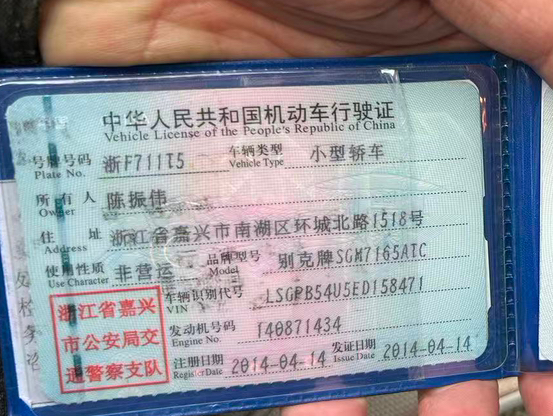 中华人民共和国机动车行驶证
Vehicle License of the People's Republic of China
号牌号码 浙F711T5 车辆类型 小型轿车
Plate No. Vehicle Type
所有人 陈振伟
Owner
住址 浙江省嘉兴市南湖区环城北路1518号
Address
使用性质 非营运 品牌型号 别克牌SGM7165ATC
Use Character Model
浙江省嘉兴
市公安局交
通警察支队
车辆识别代号 LSGPB54U5ED158471
VIN
发动机号码 140871434
Engine No.
注册日期 2014-04-14 发证日期 2014-04-14
Register Date Issue Date